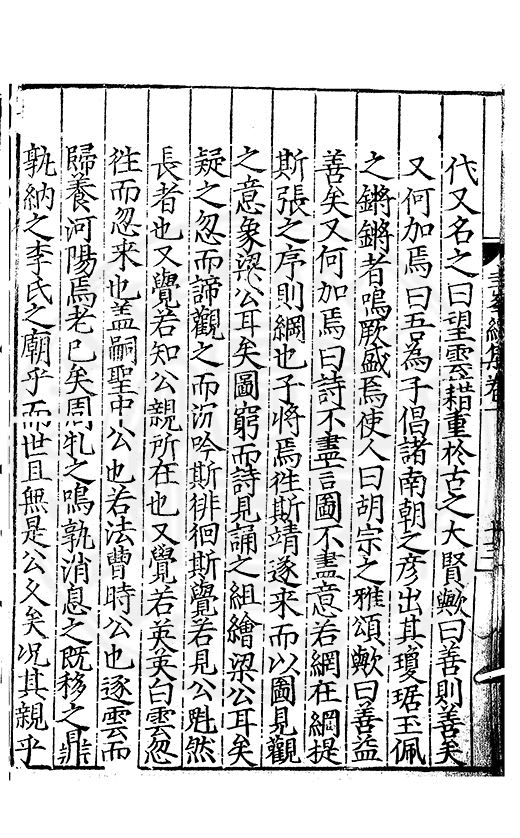 代又名之曰望雲藉重於古之大賢歟曰善則善矣
又何加焉曰吾為子倡諸南朝之彦出其瓊琚玉佩
之鏘鏘者鳴厥盛焉使人曰胡宗之雅頌歟曰善益
善矣又何加焉曰詩不盡言圖不盡意若網在綱提
斯張之序則綱也子將焉徃斯靖遂来而以圖見觀
之意象梁公耳矣圖窮而詩見誦之組繪梁公耳矣
疑之忽而諦觀之而沉吟斯徘徊斯覺若見公甝然
長者也又覺若知公親所在也又覺若英英白雲忽
徃而忽来也盖嗣聖中公也若法曹時公也逐雲而
歸養河陽焉老巳矣周牝之鳴孰消息之既移之鼎
孰納之李氏之廟乎而世且無是公久矣况其親乎